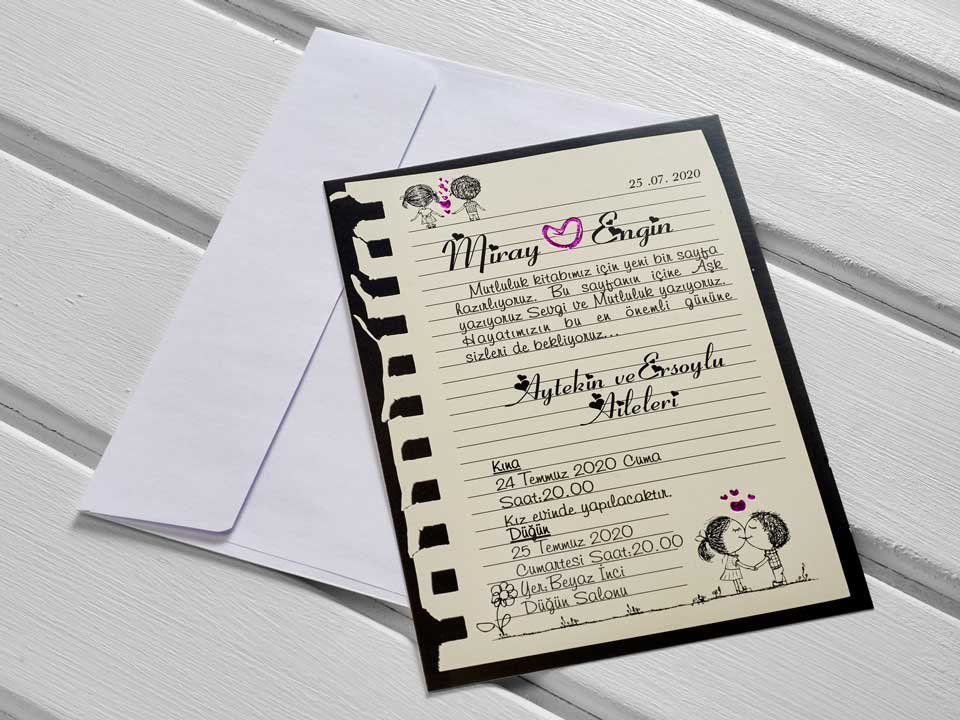 25 .07. 2020
Miray Engin
Mutluluk kitabımız için yeni bir sayfa
hazırlıyoruz. Bu sayfanın içine Aşk
yazıyoruz Sevgi ve Mutluluk yazıyoruz.
Hayatimızın bu en önemli gününe
sizleri de bekliyoruz...
Aytekin ve Ersoylu
Aileleri
Kına
24 Temmuz 2020 Cuma
Saat:20.00
Kız evinde yapılacaktır.
Düğün
25 Temmuz 2020
Cumartesi Saat:20.00
Yer:Beyaz İnci
Düğün Salonu